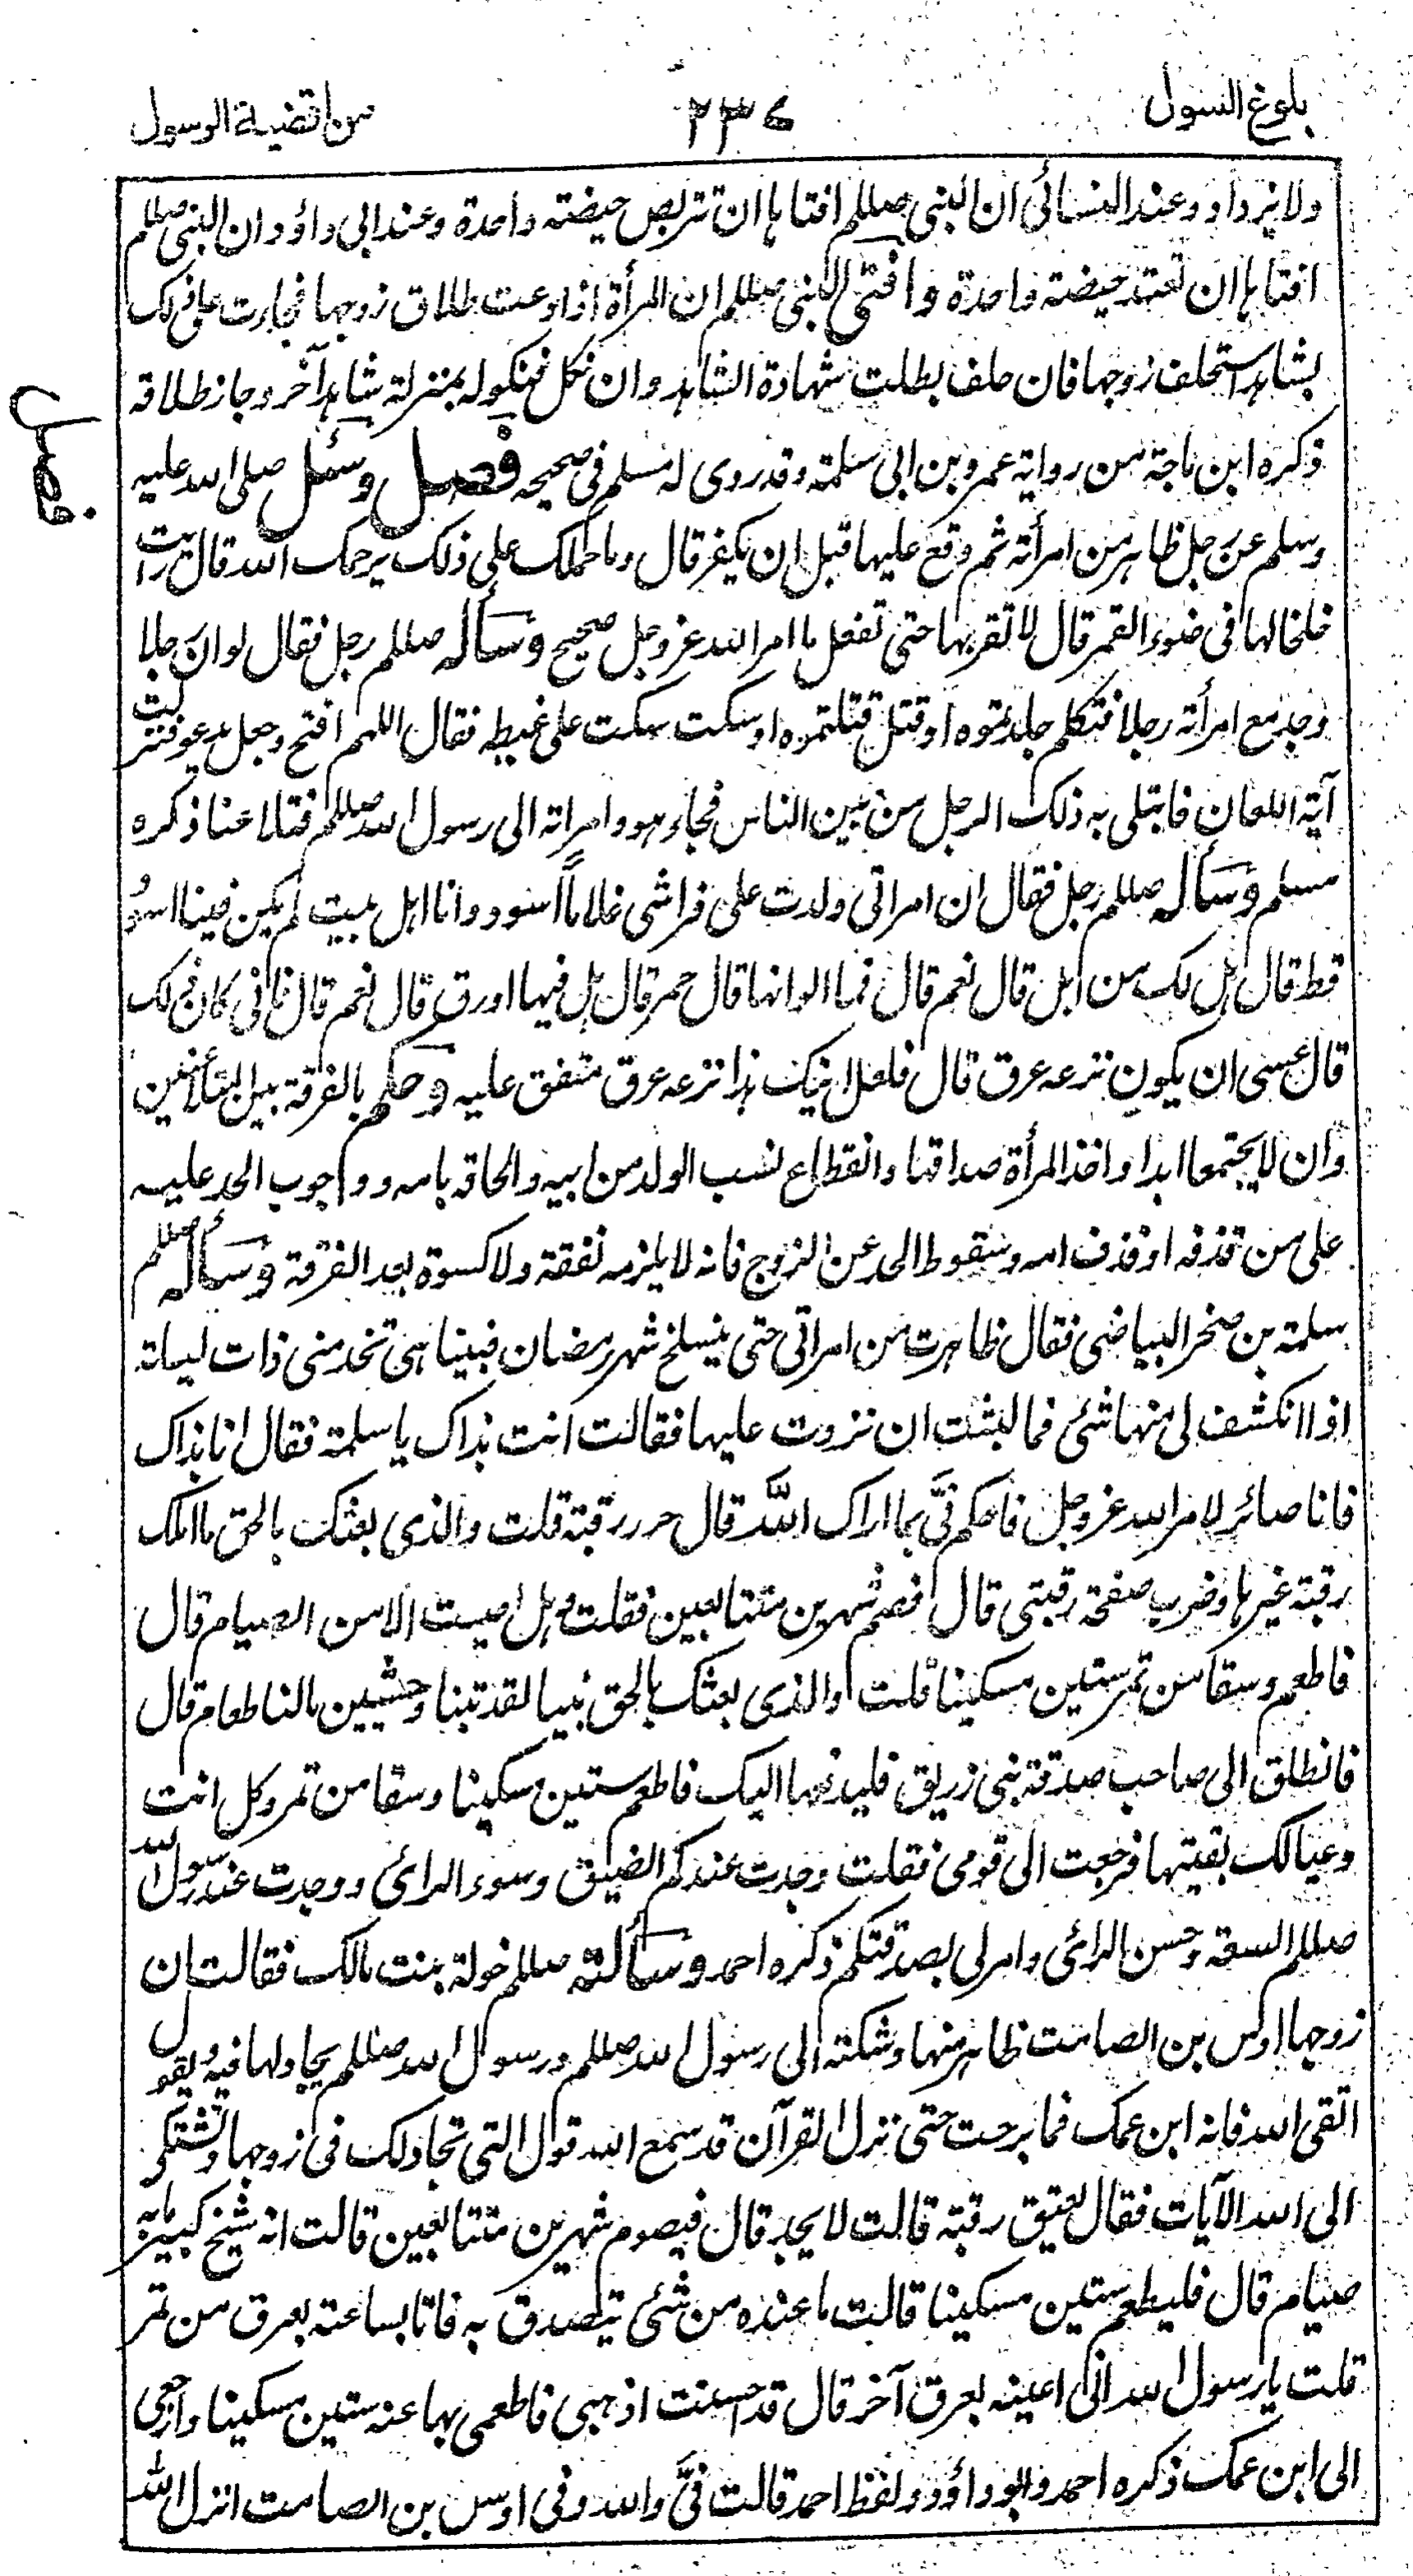 بلوغ السول
٢٣٤
من اقضية الرسول
ولا تزداد وعند النسائى ان النبى صللم افتاها ان تتربص حيضته واحدة وعند ابى داؤد ان النبى صللم
افتاها ان تعتد حيضته واحدة وافتى النبى صللم ان المرأة اذا ادعت طلاق زوجها فجاءت على ذلك
بشاهد استحلف زوجها فان حلف بطلت شهادة الشاهد وان نكل فنكوله بمنزلة شاهد آخر وجاز طلاقه
فصل
ذكره ابن ماجة من رواية عمرو بن ابى سلمة وقد روى له مسلم فى صحيحه فصل وسئل صلى الله عليه
وسلم عن رجل ظاهر من امرأته ثم وقع عليها قبل ان يكفر قال وما حملك على ذلك يرحمك الله قال رايت
خلخالها فى ضوء القمر قال لا تقربها حتى تفعل ما امر الله عز وجل صحيح وسأله صللم رجل فقال لو ان رجلا
وجد مع امرأته رجلا فتكلم جلدتموه او قتل قتلتموه او سكت سكت على غيظه فقال اللهم افتح وجعل يدعو فنزلت
آية اللعان فابتلى به ذلك الرجل من بين الناس فجاء هو وامراته الى رسول الله صللم فتلاعنا ذكره
مسلم وسأله صللم رجل فقال ان امراتى ولدت على فراشى غلاماً اسود وانا اهل بيت لم يكن فينا اسود
قط قال هل لك من ابل قال نعم قال فما الوانها قال حمر قال هل فيها اورق قال نعم قال فانى كان ذلك
قال عسى ان يكون نزعه عرق قال فلعل ابنك هذا نزعه عرق متفق عليه وحكم بالفرقة بين المتلاعنين
وان لا يجتمعا ابدا واخذ المرأة صداقها وانقطاع نسب الولد من ابيه والحاقه بامه ووجوب الحد عليه
على من قذفه او قذف امه وسقوط الحد عن الزوج فانه لا يلزمه نفقة ولا كسوة بعد الفرقة وسأله صللم
سلمة بن صخر البياضى فقال ظاهرت من امراتى حتى ينسلخ شهر رمضان فبينا هى تخدمنى ذات ليلة
اذا انكشف لى منها شئ فما لبثت ان نزوت عليها فقالت انت بذاك يا سلمة فقال انا بذاك
فانا صائر لامر الله عز وجل فاحكم فيَّ بما اراك اللّٰه قال حرر رقبة قلت والذى بعثك بالحق ما املك
رقبة غيرها وضرب صفحة رقبتى قال فصم شهرين متتابعين فقلت وهل اصبت الا من الصيام قال
فاطعم وسقا من تمر ستين مسكينا قلت والذى بعثك بالحق نبيا لقد بتنا وحشيين مالنا طعام قال
فانطلق الى صاحب صدقة بنى زريق فليدفعها اليك فاطعم ستين مسكينا وسقا من تمر وكل انت
وعيالك بقيتها فرجعت الى قومى فقلت وجدت عندكم الضيق وسوء الرائ ووجدت عند رسول الله
صللم السعة وحسن الرائ وامر لى بصدقتكم ذكره احمد وسألته صللم خولة بنت مالك فقالت ان
زوجها اوس بن الصامت ظاهر منها وشكته الى رسول الله صللم ورسول الله صللم يجادلها فيه ويقول
اتقى الله فانه ابن عمك فما برحت حتى نزل القرآن قد سمع الله قول التى تجادلك فى زوجها وتشتكى
الى الله الآيات فقال يعتق رقبة قالت لا يجد قال فيصوم شهرين متتابعين قالت انه شيخ كبير ما به
صيام قال فليطعم ستين مسكينا قالت ما عنده من شئ يتصدق به فاتا بساعته بعرق من تمر
قلت يا رسول الله انى اعينه بعرق آخر قال قد احسنت اذهبى فاطعمى بها عنه ستين مسكينا وارجعى
الى ابن عمك ذكره احمد وابو داؤد ولفظ احمد قالت فىَّ والله وفى اوس بن الصامت انزل الله